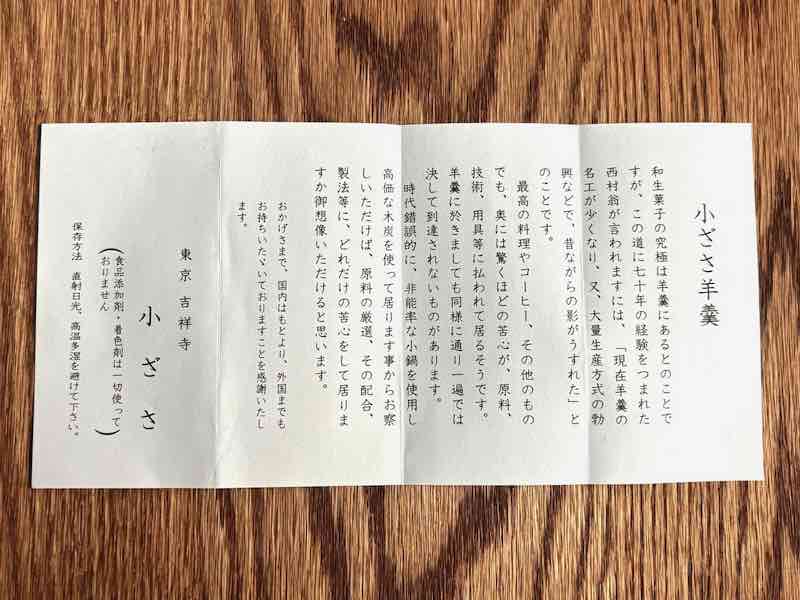 小ざさ羊羹
和生菓子の究極は羊羹にあるとのことで
すが、この道に七十年の経験をつまれた
西村翁が言われますには、「現在羊羹の
名工が少くなり、又、大量生産方式の勃
興などで、昔ながらの影がうすれた」と
のことです。
最高の料理やコーヒー、その他のもの
でも、奥には驚くほどの苦心が、原料、
技術、用具等に払われて居るそうです。
羊羹に於きましても同様に通り一遍では
決して到達されないものがあります。
時代錯誤的に、非能率な小鍋を使用し
高価な木炭を使って居ります事からお察
しいただけば、原料の厳選、その配合、
製法等に、どれだけの苦心をして居りま
すか御想像いただけると思います。
おかげさまで、国内はもとより、外国までも
お持ちいたゞいておりますことを感謝いたし
ます。
東京 吉祥寺
小ざさ
(食品添加剤・着色剤は一切使って
おりません)
保存方法 直射日光、高温多湿を避けて下さい。